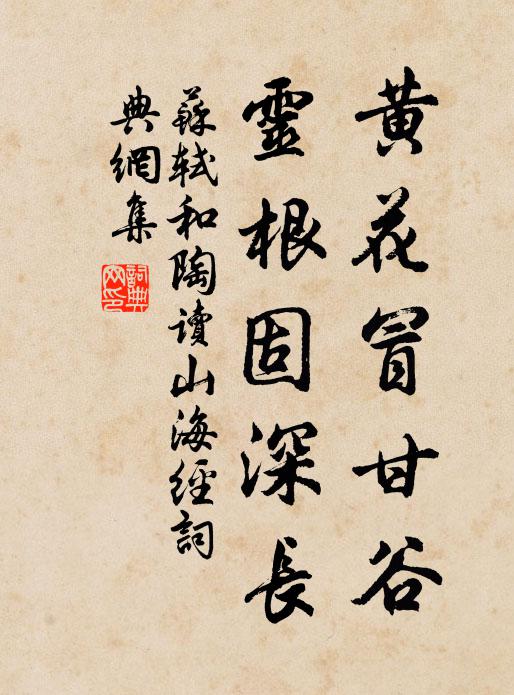 黄花冒甘谷
靈根固深長
蘇軾和陶讀山海經詞
典網集
詞典
网印